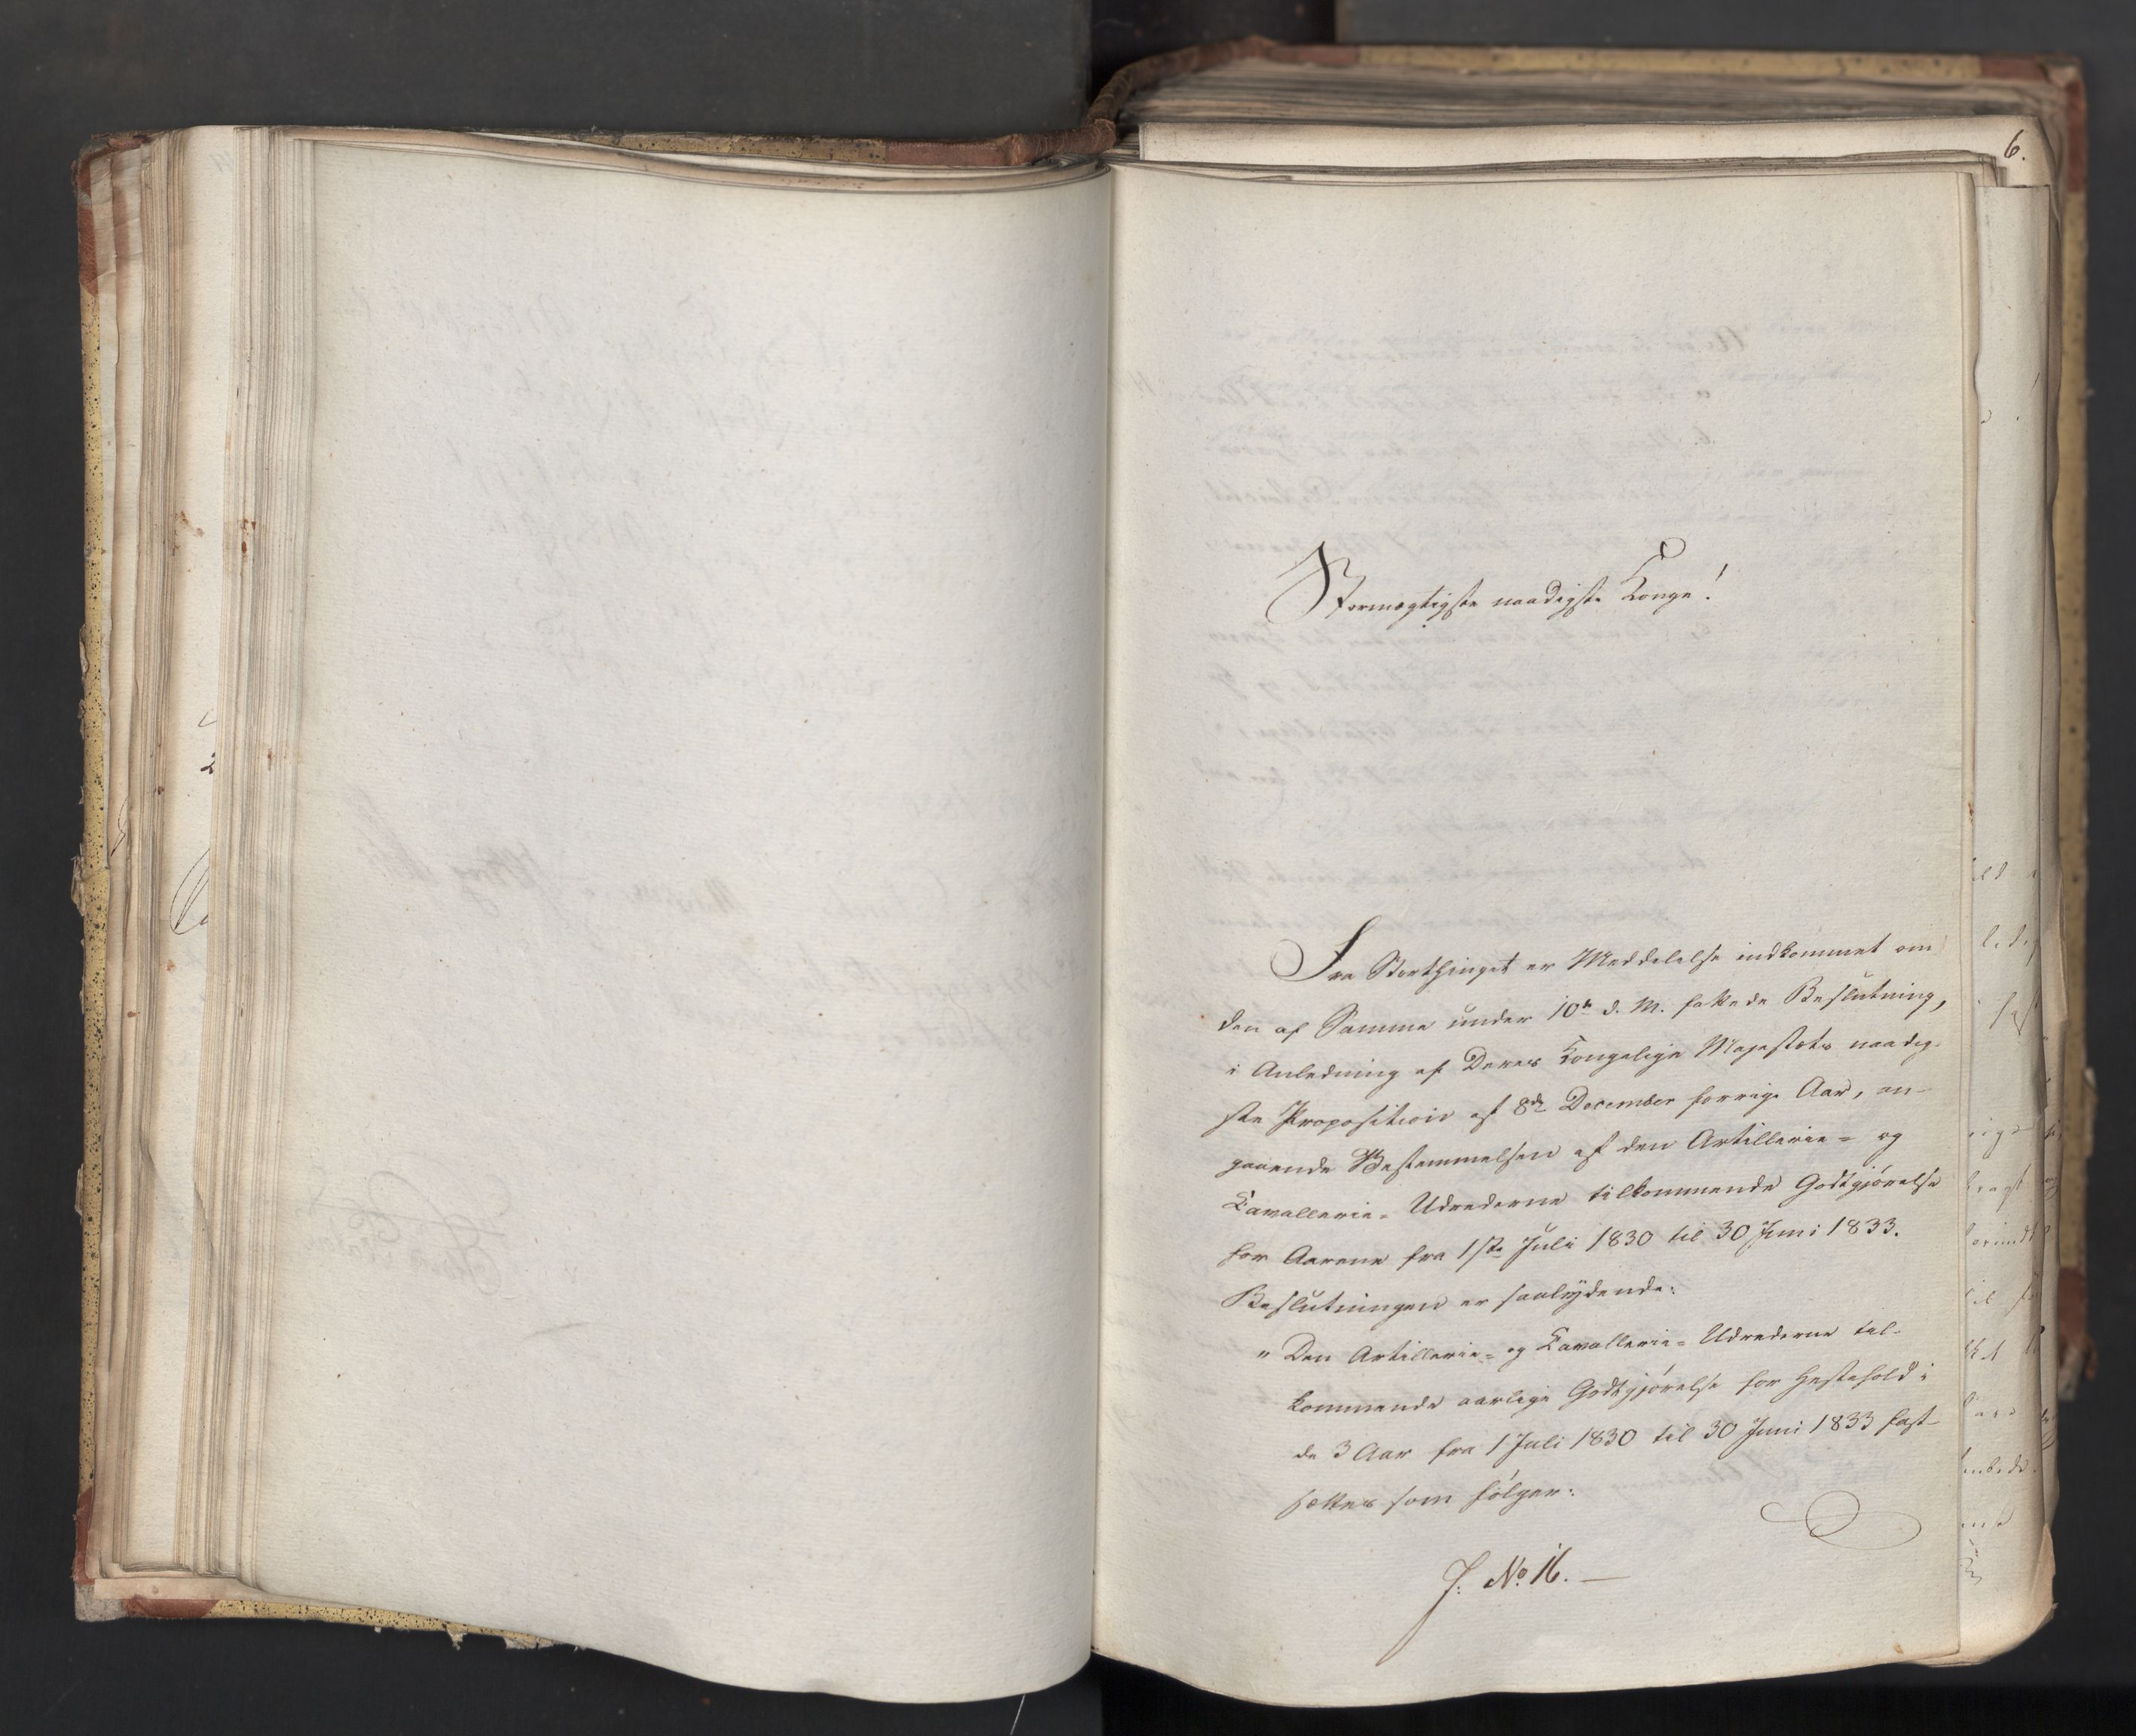 6.
Stormægtigste naadigste Konge!
Fra Storthinget er Meddelelse indkommet om
den af Samme under 10de d. M. fattede Beslutning,
i Anledning af Deres Kongelige Majestæts naadig-
ste Proposition af 8de December forrige Aar, an-
gaaende Bestemmelsen af den Artillerie- og
Cavallerie- Udrederne tilkommende Godtgjørelse
for Aarene fra 1ste Juli 1830 til 30 Juni 1833.
Beslutningen er saalydende:
" Den Artillerie- og Cavallerie- Udrederne til-
kommende aarlige Godtgjørelse for Hestehold i
de 3 Aar fra 1 Juli 1830 til 30 Juni 1833 fast-
sættes som følger:
J. No 16. —